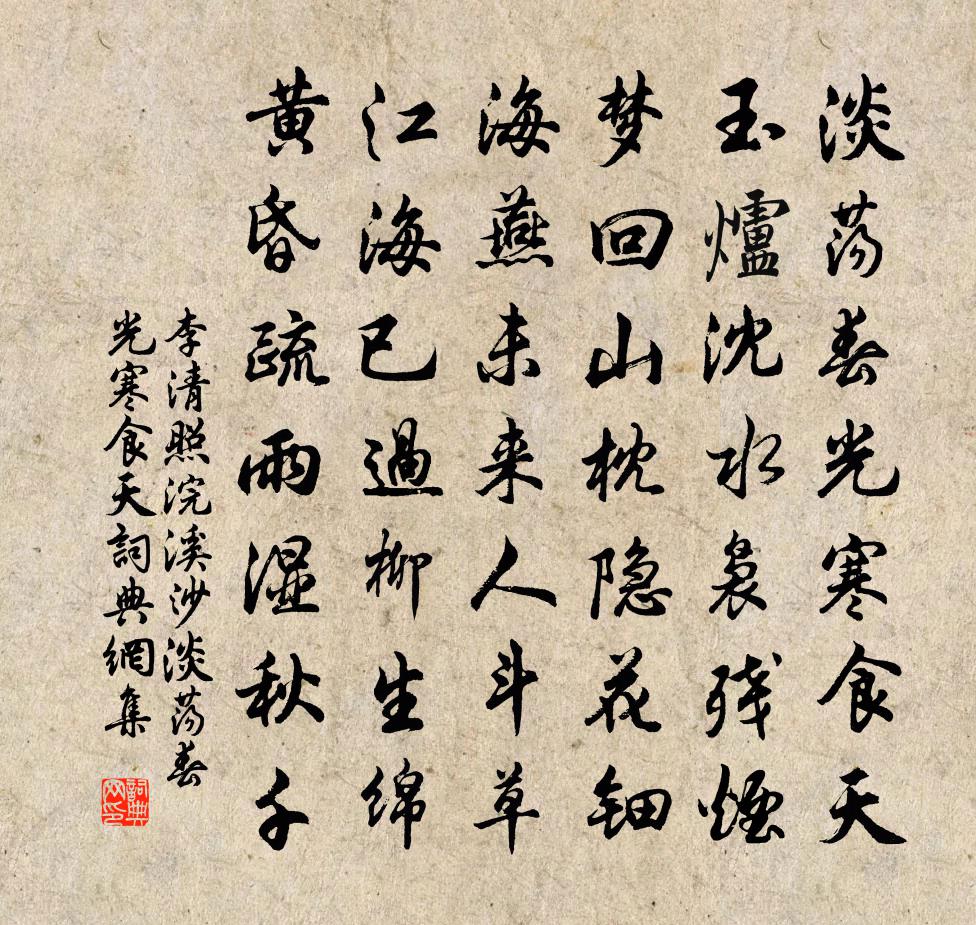 淡荡春光寒食天
玉爐沈水袅残煙
梦回山枕隐花钿
海燕未来人斗草
江海已過柳生绵
黄昏疏雨湿秋千
李清照浣溪沙淡荡春
光寒食天詞典網集
詞典
网印